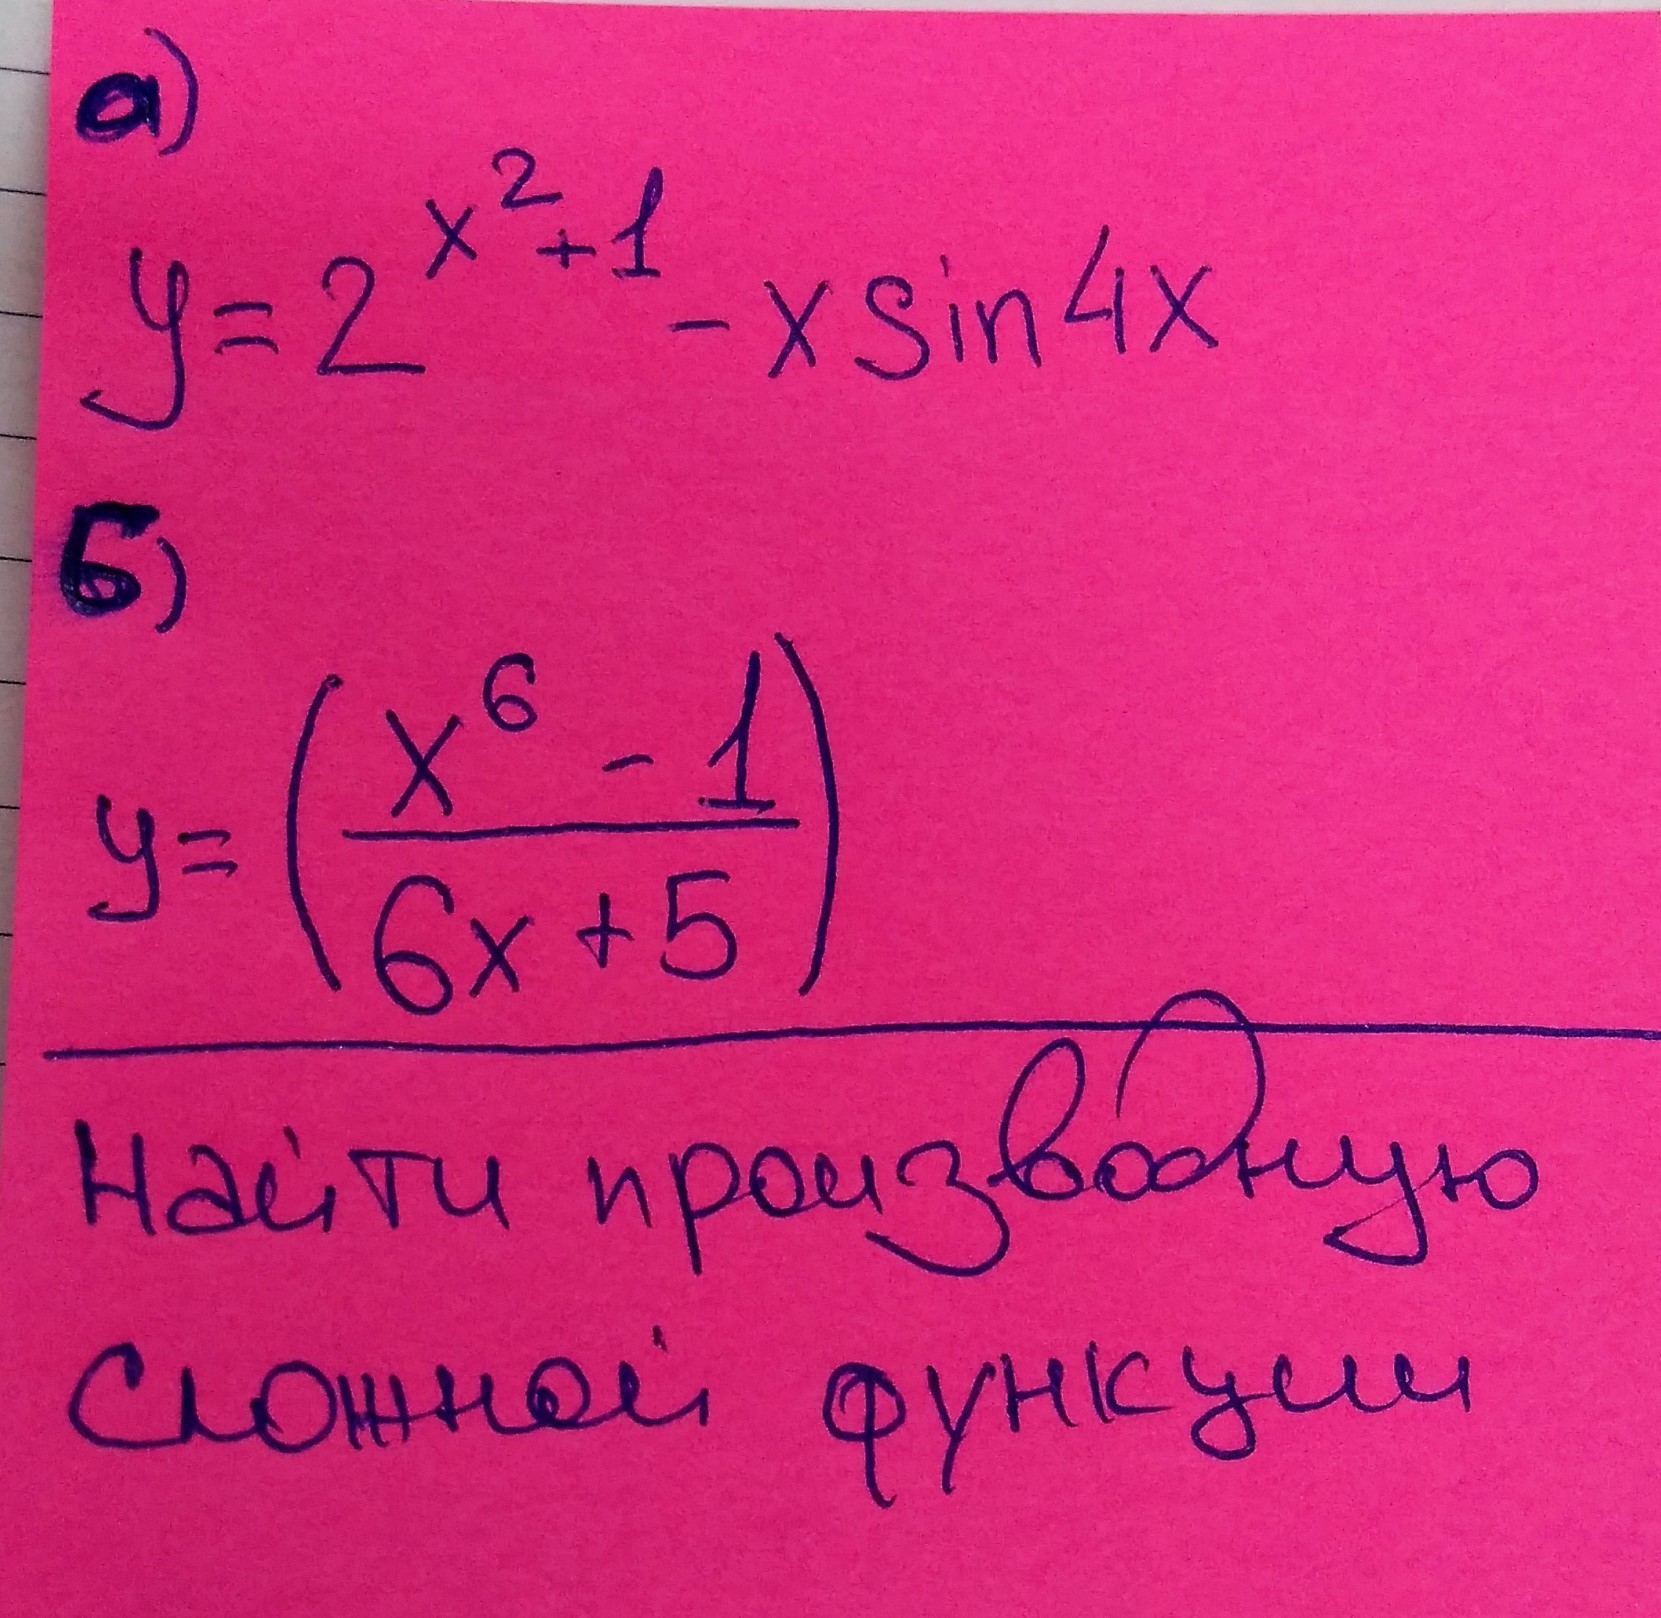 а)
y=2^{x^2+1}-x sin4x
б)
y=(\frac{x^6-1}{6x+5})
Найти производную
сложной функции